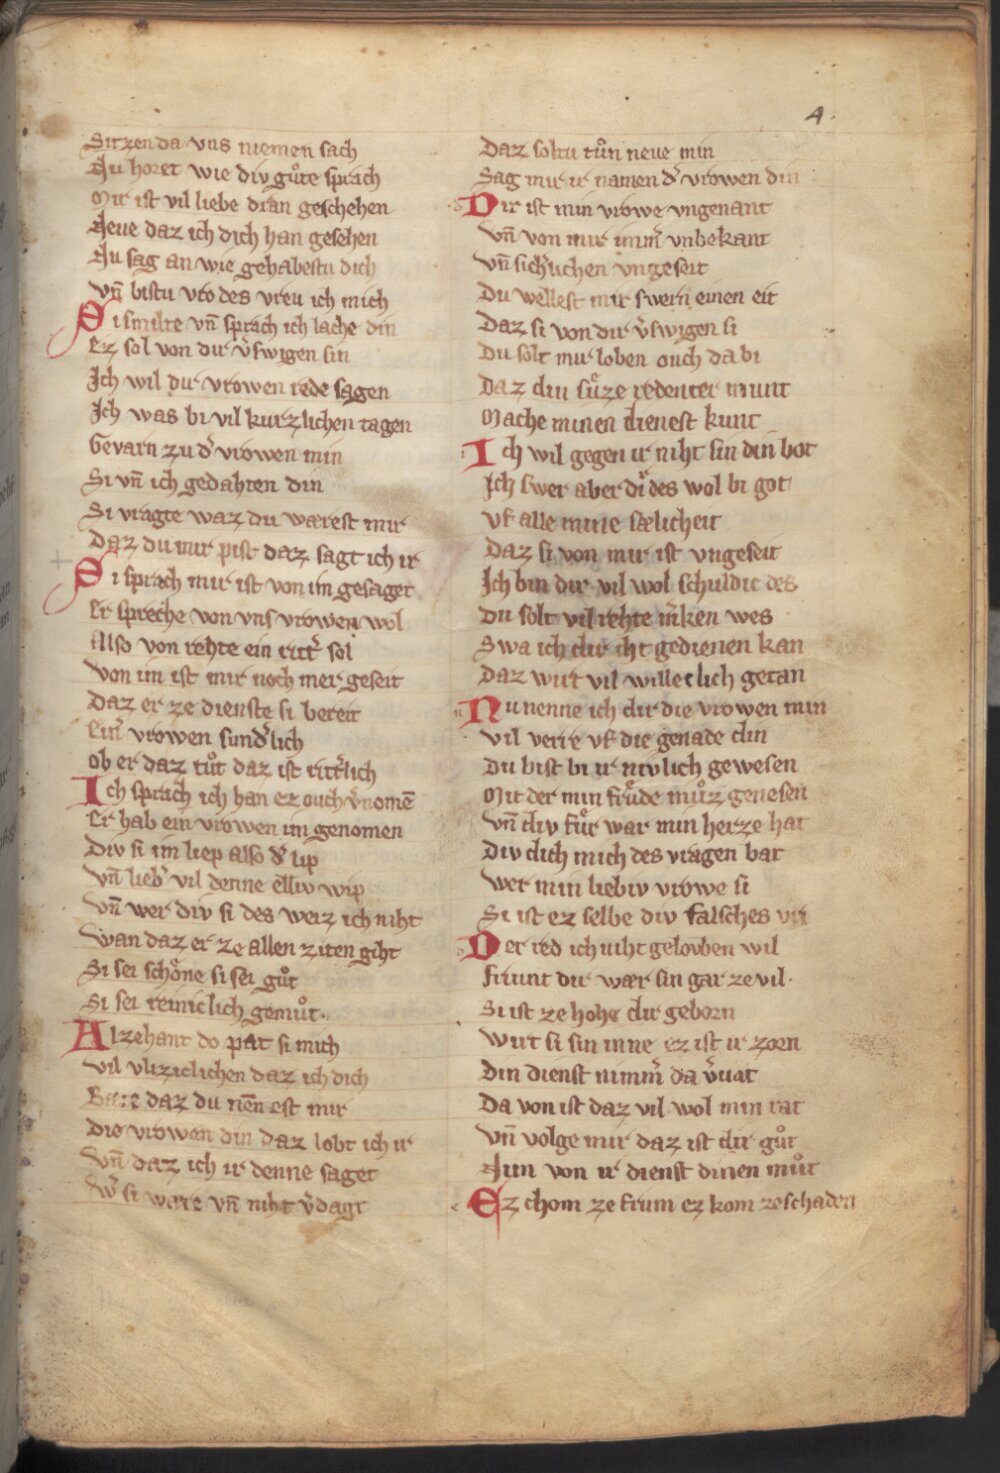 4.
Sitzen da vns niemen sach
Nu horet wie div gůte sprach
Mir ist vil liebe dran geschehen
Neue daz ich dich han gesehen
Nu sag an wie gehabestu dich
Vn̄ bistu vro des vreu ich mich
Si smilte vn̄ sprach ich lache din
Ez sol von dir v̓swigen sin
Ich wil dir vrowen rede sagen
Ich was bi vil kurzlichen tagen
Gevarn zu d̓ vrowen min
Si vn̄ ich gedahten din
Si vragte waz du wærest mir
Daz du mir pist daz sagt ich ir
Si sprach mir ist von im gesaget
Er spreche von vns vrowen wol
Also von rehte ein ritt̓ sol
Von im ist mir noch mer geseit
Daz er ze dienste si bereit
Ein̓ vrowen sund̓lich
Ob er daz tůt daz ist ritt̓lich
Ich sprach ich han ez ouch v̓nomē
Er hab ein vrowen im genomen
Div si im liep also d̓ lip
Vn̄ lieb̓ vil denne elliv wip
Vn̄ wer div si des weiz ich niht
Wan daz er ze allen ziten giht
Si sei schoͤne si sei gůt
Si sei reiniclich gemůt.
Alzehant do pat si mich
Vil vliziclichen daz ich dich
Bæte daz du nēnest mir
Die vrowen din daz lobt ich ir
Vn̄ daz ich ir denne saget
W̓ si ware vn̄ niht v̓dagt
Daz soltu tůn neue min
Sag mir ir namen d̓ vrowen din
Dir ist min vrowe vngenant
Vn̄ von mir imm̓ vnbekant
Vn̄ sich̓lichen vngeseit
Du wellest mir swern einen eit
Daz si von dir v̓swigen si
Du solt mir loben ouch da bi
Daz din suͤze redenter munt
Mache minen dienest kunt
Ich wil gegen ir niht sin din bot
Ich swer aber dir des wol bi got
Vf alle mine sælicheit
Daz si von mir ist vngeseit
Ich bin dir vil wol schuldic des
Du solt vil rehte m̓ken wes
Swa ich dir iht gedienen kan
Daz wirt vil willeclich getan
Nu nenne ich dir die vrowen min
Vil verre vf die genade din
Du bist bi ir nivlich gewesen
Mit der min fruͤde můz genesen
Vn̄ div fuͤr war min herze hat
Div dich mich des vragen bat
Wer min liebiv vrowe si
Si ist ez selbe div falsches vri
Der red ich niht gelowben wil
Friunt dir wær sin gar ze vil.
Si ist ze hohe dir geborn
Wirt si sin inne ez ist ir zorn
Din dienst nimm̓ da v̓vat
Da von ist daz vil wol min rat
Vn̄ volge mir daz ist dir gůt
Nim von ir dienst dinen můt
Ez chom ze frum ez kom ze schaden